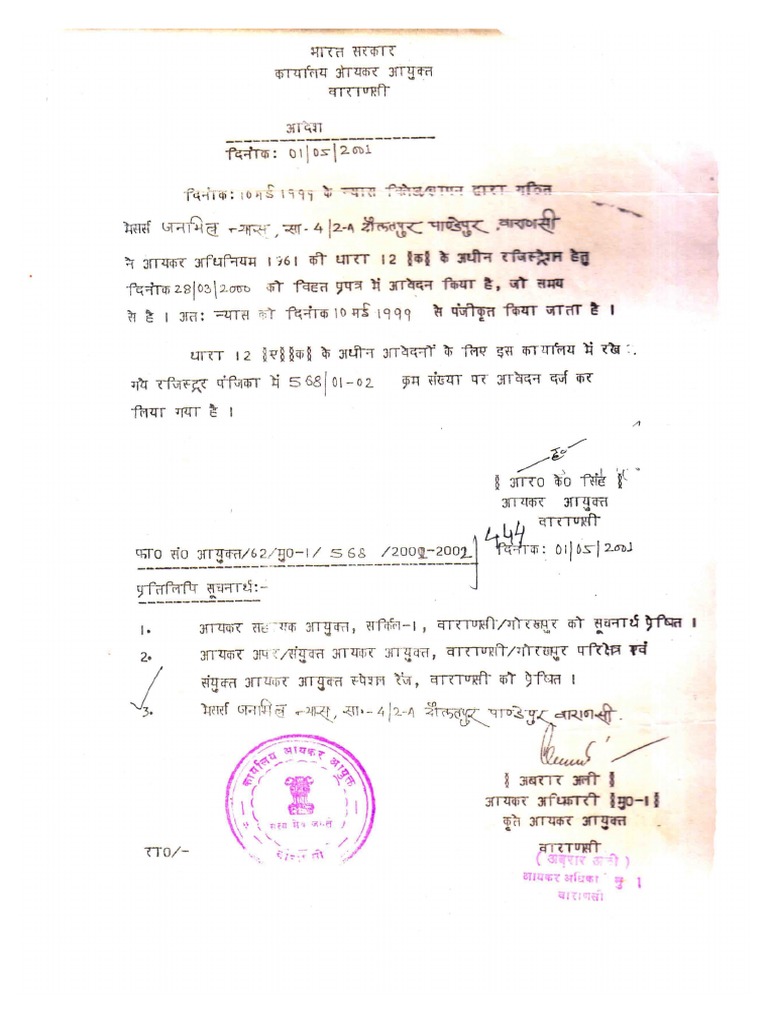 भारत सरकार
कार्यालय आयकर आयुक्त
वाराणसी
आदेश
दिनांक: 01/05/2001
दिनांक: 10 मई 1999 के न्यास द्वारा गठित
मेसर्स जनमित्र न्यास, सा-4/2-A दौलतपुर पाण्डेपुर, वाराणसी
ने आयकर अधिनियम 1961 की धारा 12 §क§ के अधीन रजिस्ट्रेशन हेतु
दिनांक 28/03/2000 को विहत प्रपत्र में आवेदन किया है, जो समय
से है । अतः न्यास को दिनांक 10 मई 1999 से पंजीकृत किया जाता है ।
धारा 12 §ए§§क§ के अधीन आवेदनों के लिए इस कार्यालय में रखे
गये रजिस्ट्रर पंजिका में 568/01-02 क्रम संख्या पर आवेदन दर्ज कर
लिया गया है ।
§ आर0 के0 सिंह §
आयकर आयुक्त
वाराणसी
444
फा0 सं0 आयुक्त/62/मु0-1/ 568 /2001-2002 दिनांक: 01/05/2001
प्रतिलिपि सूचनार्थ:-
1. आयकर सहायक आयुक्त, सर्किल-1, वाराणसी/गोरखपुर को सूचनार्थ प्रेषित ।
2. आयकर अपर/संयुक्त आयकर आयुक्त, वाराणसी/गोरखपुर परिक्षेत्र एवं
संयुक्त आयकर आयुक्त स्पेशल रेंज, वाराणसी को प्रेषित ।
3. मेसर्स जनमित्र न्यास, सा.-4/2-A दौलतपुर पाण्डेपुर वाराणसी.
§ अबरार अली §
आयकर अधिकारी §मु0-1§
कृते आयकर आयुक्त
वाराणसी
रा0/-
(अबरार अली)
आयकर अधिका मु 1
वाराणसी
कार्यालय आयकर आयुक्त
सत्यमेव जयते